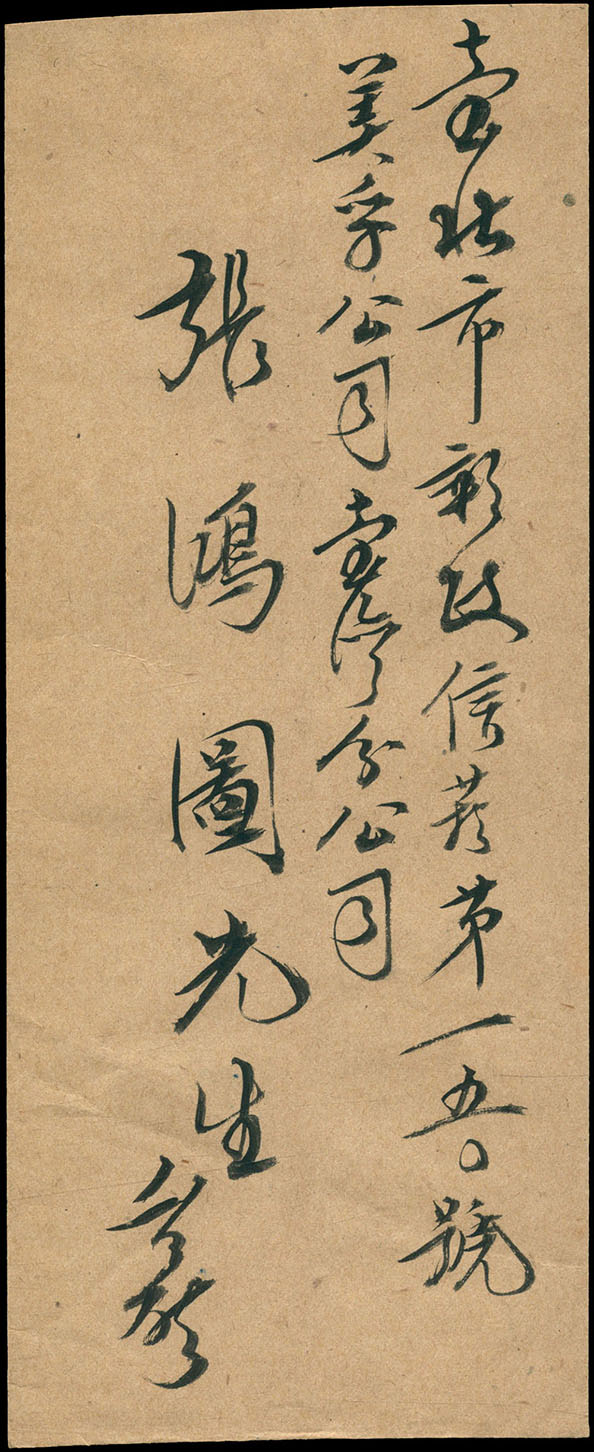 臺北市郵政信箱第一五〇號
美孚公司臺灣分公司
張鴻圖先生台啓